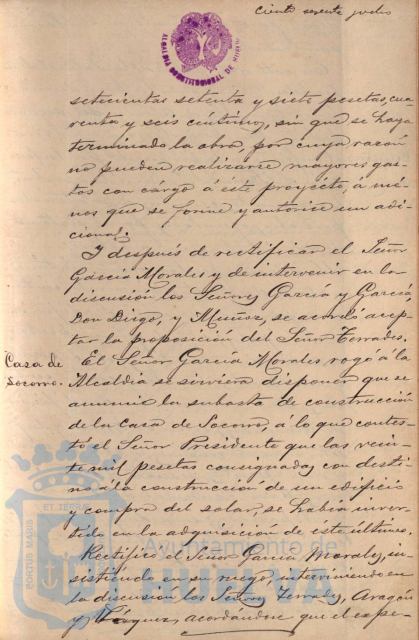 Ciento sesenta y ocho
ALCALDIA CONSTITUCIONAL DE HUELVA
setecientas setenta y siete pesetas, cua
renta y seis céntimos, sin que se haya
terminado la obra, por cuya razón
no pueden realizarse mayores gas-
tos con cargo á este proyecto, á mé-
nos que se forme y autorice un adi-
cional.
Y después de rectificar el Señor
García Morales y de intervenir en la
discusión los Señores García y García
Don Diego, y Muñoz, se acordó acep-
tar la proposición del Señor Terrades.
Casa de
Socorro.
El Señor García Morales rogó á la
Alcaldía se sirviera disponer que se
anuncie la subasta de construcción
de la Casa de Socorro, á lo que contes-
tó el Señor Presidente que las vein-
te mil pesetas consignadas con desti-
no á la construcción de un edificio
y compra del solar, se había inver-
tido en la adquisición de este último.
Rectificó el Señor García Morales, in-
sistiendo en su ruego, interviniendo en
la discusión los Señores Terrades, Aragón
y Vázquez, acordándose que el expe-
PORTUS MARIS
ET TERRAE
Ayuntamiento de
HUELVA